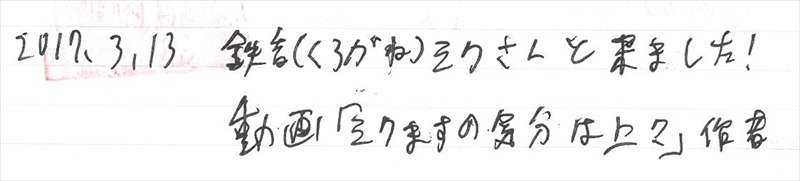 2017.3.13 鉄音(くろがね)ミクさんと来ました!
動画「ミクますの気分は上々」作者